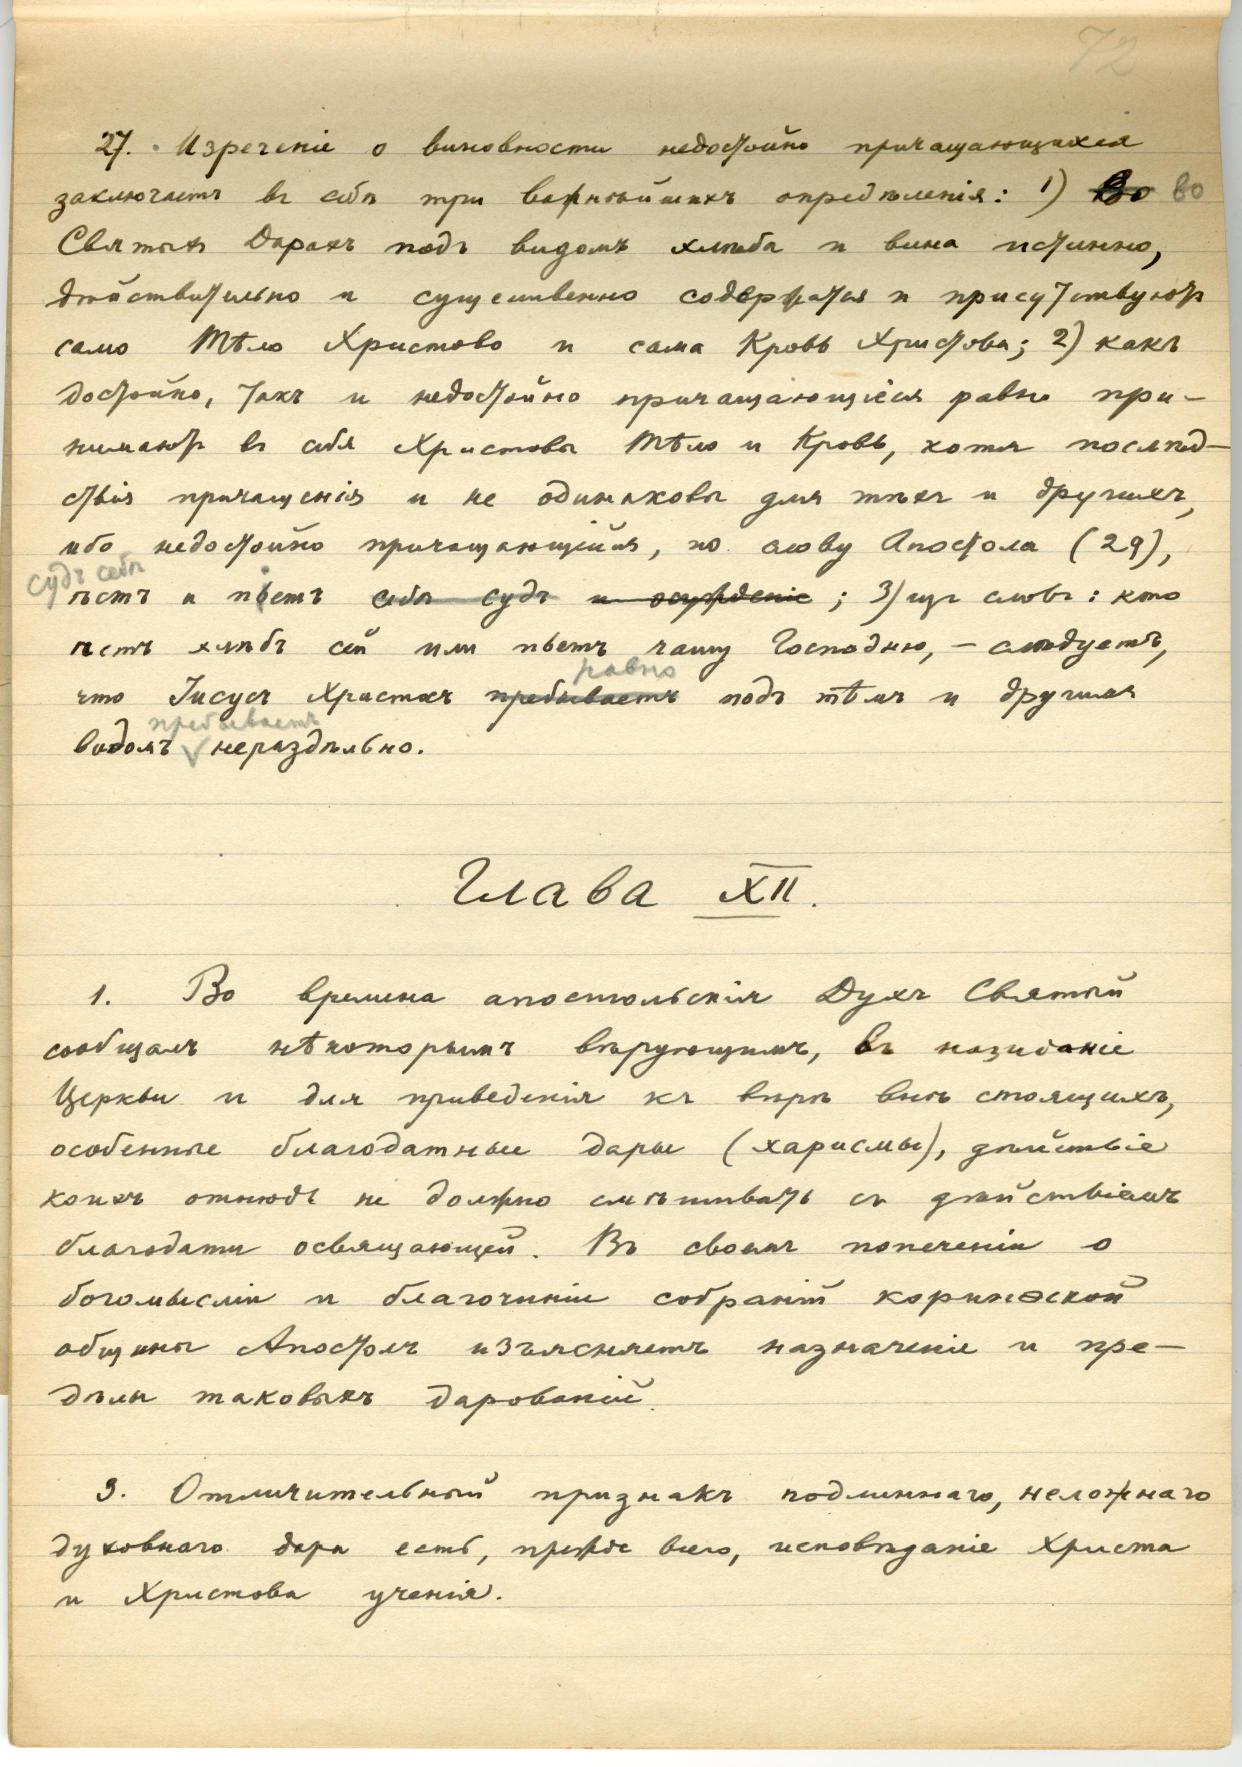 72
27. Изреченіе о виновности недостойно причащающихся
заключаетъ въ себѣ три важнѣйшихъ опредѣленія: 1) Во во
Святыхъ Дарахъ подъ видомъ хлѣба и вина истинно,
дѣйствительно и существенно содержатся и присутствуютъ
само Тѣло Христово и сама Кровь Христова; 2) какъ
достойно, такъ и недостойно причащающіеся равно при-
нимаютъ въ себя Христовы Тѣло и Кровь, хотя послѣд-
ствія причащенія и не одинаковы для тѣхъ и другихъ,
ибо недостойно причащающійся, по слову Апостола (29),
судъ себѣ
ѣстъ и піетъ себѣ судъ и осужденіе; 3) изъ словъ: кто
ѣстъ хлѣбъ сей или пьетъ чашу Господню, – слѣдуетъ,
равно
что Іисусъ Христосъ пребываетъ подъ тѣмъ и другимъ
пребываетъ
видомъ нераздѣльно.
Глава XII.
1. Во времена апостольскія Духъ Святый
сообщалъ нѣкоторымъ вѣрующимъ, въ назиданіе
Церкви и для приведенія къ вѣрѣ внѣ стоящихъ,
особенные благодатные дары (харисмы), дѣйствіе
коихъ отнюдь не должно смѣшивать съ дѣйствіемъ
благодати освящающей. Въ своемъ попеченіи о
богомысліи и благочиніи собраній коринѳской
общины Апостолъ изъясняетъ назначеніе и пре-
дѣлы таковыхъ дарованій.
3. Отличительный признакъ подлиннаго, неложнаго
духовнаго дара есть, прежде всего, исповѣданіе Христа
и Христова ученія.